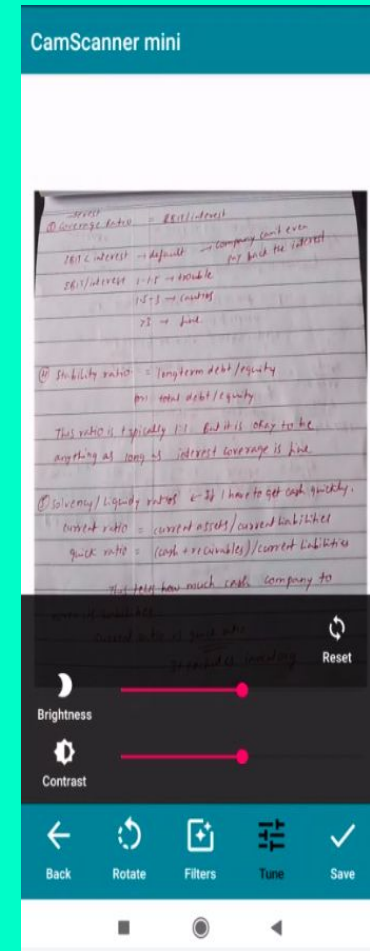 CamScanner mini
Interest
③ Coverage Ratio = EBIT/interest
EBIT < interest → default → company can't even
pay back the interest
EBIT/interest 1-1.5 → trouble
1.5-3 → cautios
>3 → fine
④ Stability ratio = longterm debt/equity
or total debt/equity
This ratio is typically 1:1. But it is okay to be
anything as long as interest coverage is fine
⑤ Solvency/Liquidy ratios ← If I have to get cash quickly.
Current ratio = current assets/current liabilities
quick ratio = (cash + recivables)/current liabilities
This tells how much cash company to
current ratio is quick ratio
inventory
Reset
Brightness
Contrast
Back
Rotate
Filters
Tune
Save